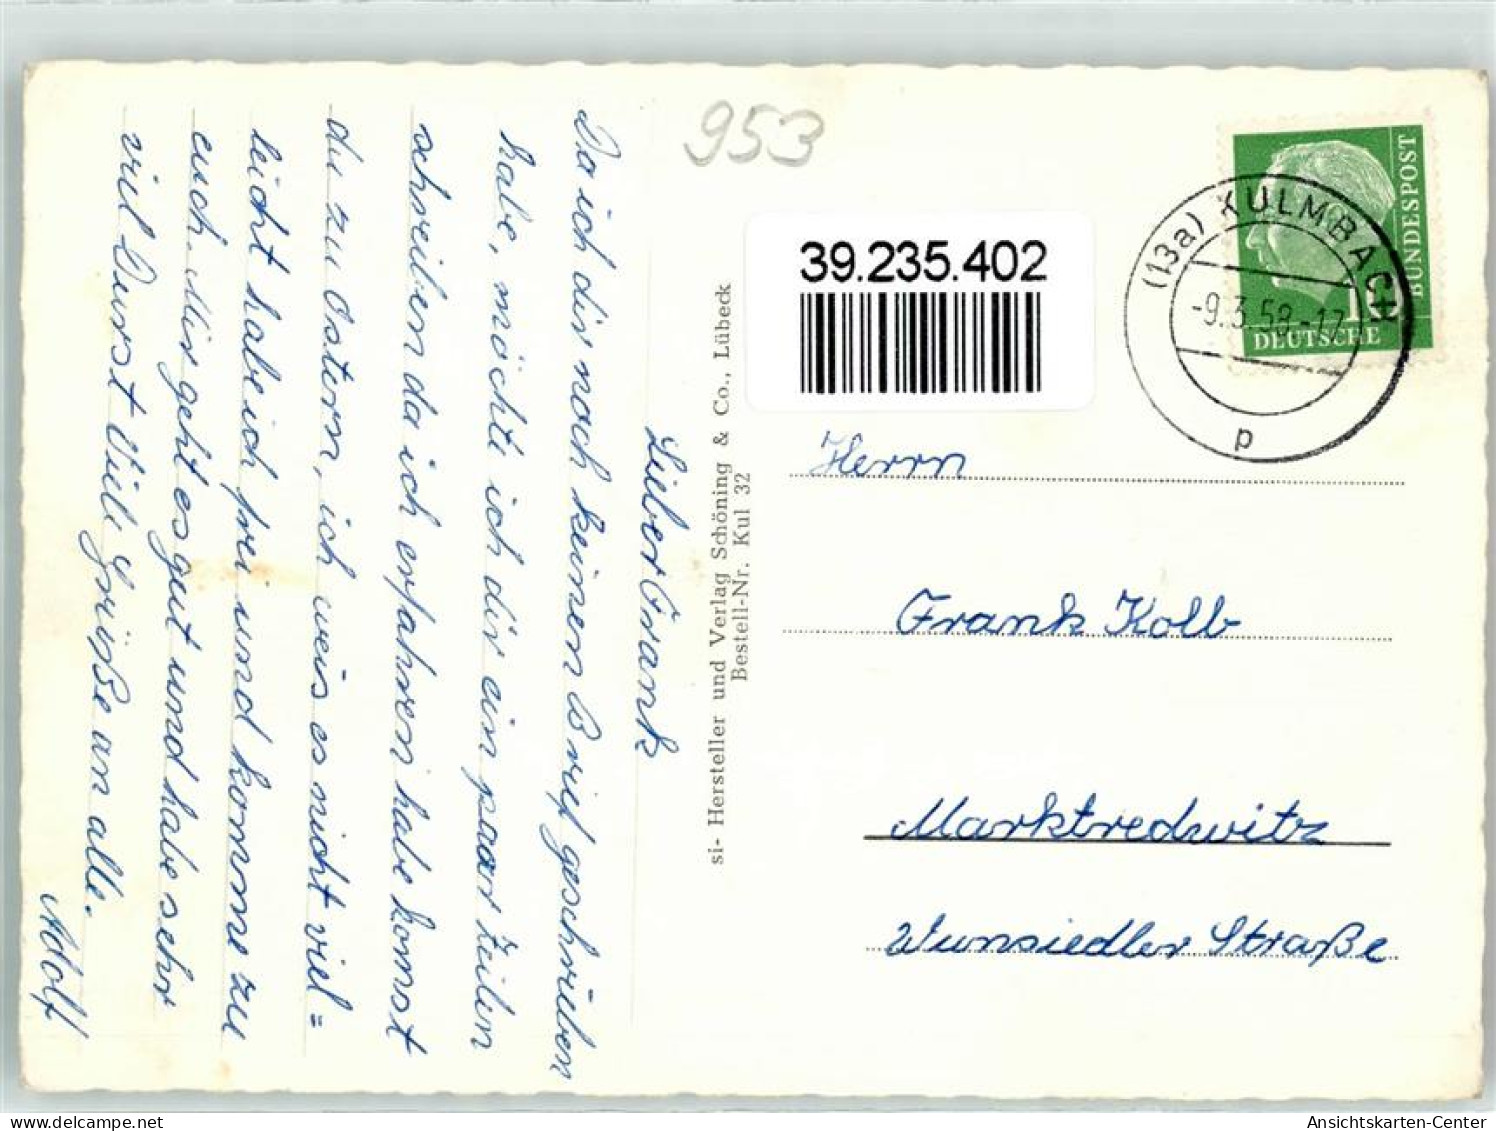 953
39.235.402
(13a) KULMBACH
-9.3.58.-17
p
BUNDESPOST
DEUTSCHE
Lieber Frank
Da ich dir noch keinen Brief geschrieben
habe, möchte ich dir ein paar Zeilen
schreiben da ich erfahren habe komst
du zu Ostern, ich weis es nicht viel=
leicht habe ich frei und komme zu
euch. Mir geht es gut und habe sehr
viel Durst Viele Grüße an alle.
Adolf
si- Hersteller und Verlag Schöning & Co., Lübeck
Bestell-Nr. Kul 32
Herrn
Frank Kolb
Marktredwitz
Wunsiedler Straße
delcampe.net
Ansichtskarten-Center